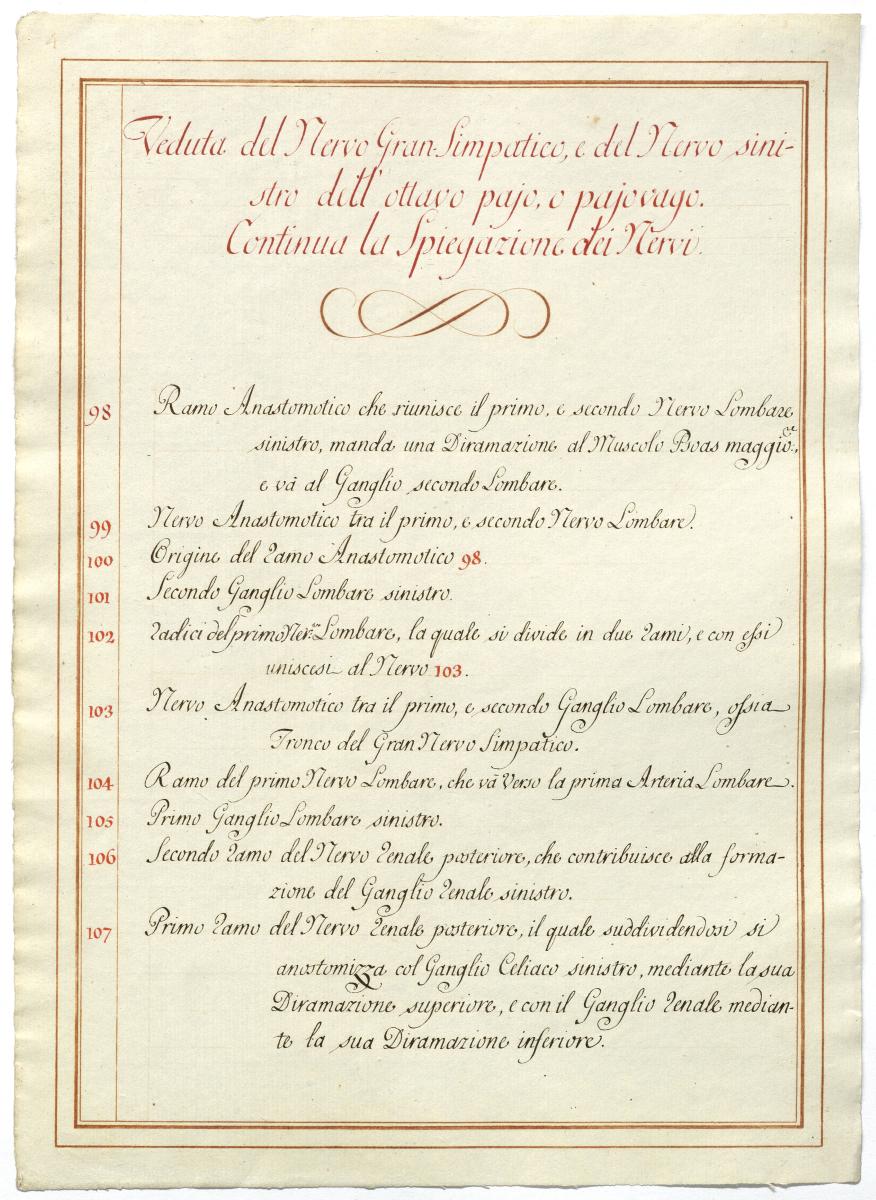 Veduta del Nervo Gran-Simpatico, e del Nervo sini-
stro dell' ottavo pajo, o pajovago.
Continua la Spiegazione dei Nervi.
98 Ramo Anastomotico che riunisce il primo, e secondo Nervo Lombare
sinistro, manda una Diramazione al Muscolo Psoas maggio.re,
e vã al Ganglio secondo Lombare.
99 Nervo Anastomotico tra il primo, e secondo Nervo Lombare.
100 Origine del ramo Anastomotico 98.
101 Secondo Ganglio Lombare sinistro.
102 radici del primo Ner.vo Lombare, la quale si divide in due rami, e con essi
uniscesi al Nervo 103.
103 Nervo Anastomotico tra il primo, e secondo Ganglio Lombare, ossia
Tronco del Gran Nervo Simpatico.
104 Ramo del primo Nervo Lombare, che vã verso la prima Arteria Lombare.
105 Primo Ganglio Lombare sinistro.
106 Secondo ramo del Nervo renale posteriore, che contribuisce alla forma-
zione del Ganglio renale sinistro.
107 Primo ramo del Nervo renale posteriore, il quale suddividendosi si
anostomizza col Ganglio Celiaco sinistro, mediante la sua
Diramazione superiore, e con il Ganglio renale median-
te la sua Diramazione inferiore.